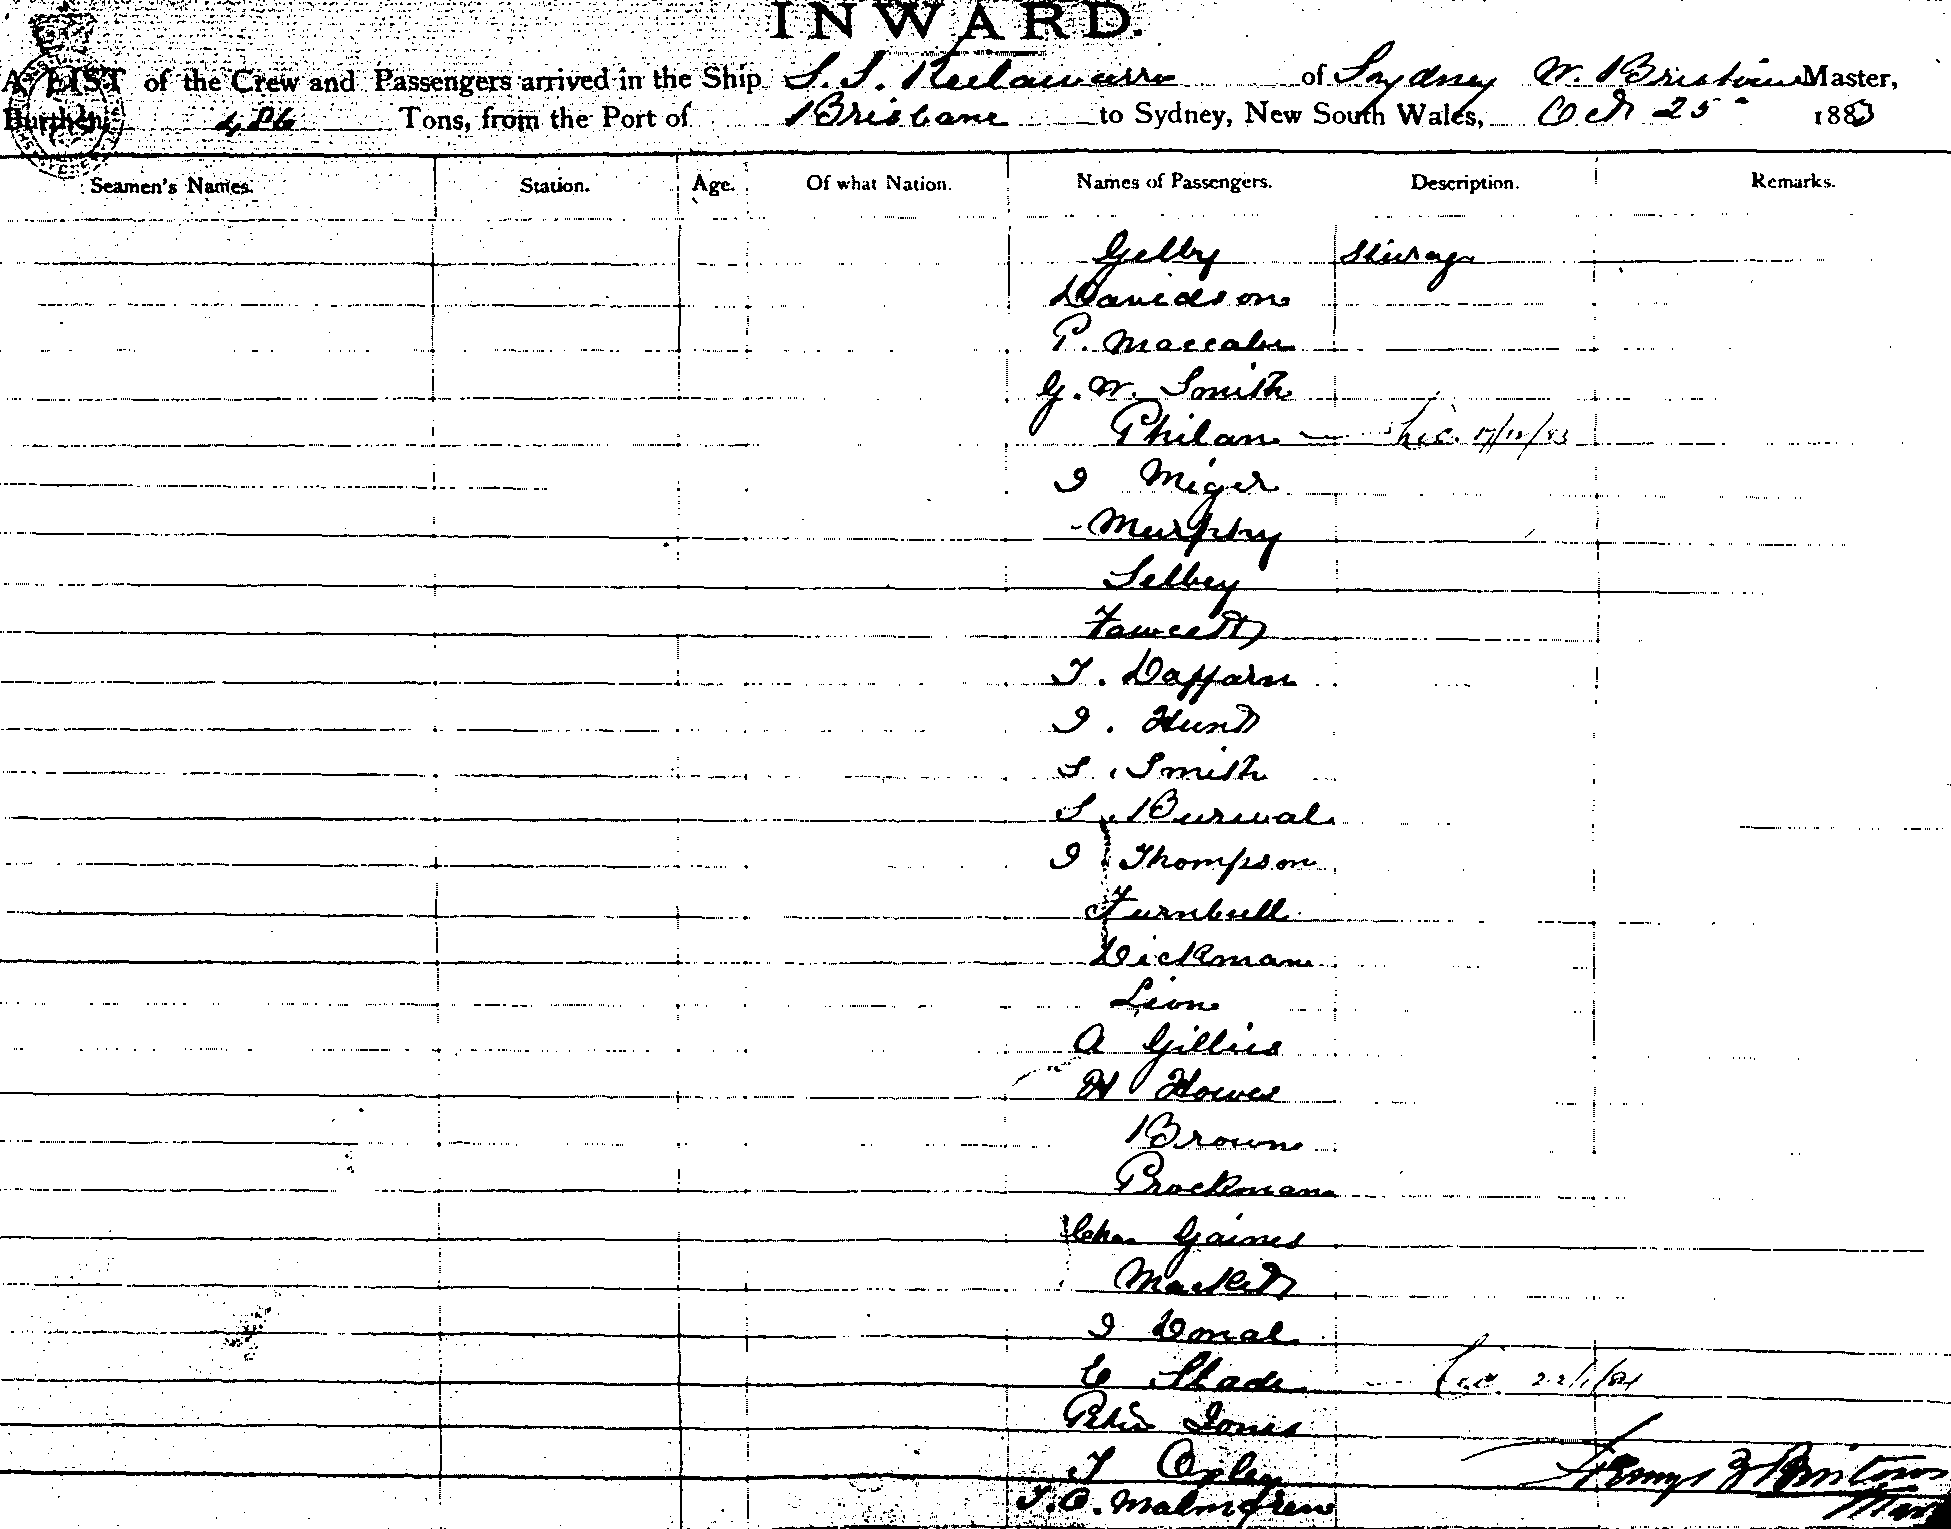 INWARD.
A LIST of the Crew and Passengers arrived in the Ship S. S. Keilawarra of Sydney W. Master,
Burthen, 486 Tons, from the Port of Brisbane to Sydney, New South Wales, Oct 25 1883
Seamen's Names. Station. Age. Of what Nation. Names of Passengers. Description. Remarks.
Gelby Steerage
Davidson
P. Maccabe
G. W. Smith
Philan — Lic. 17/12/83
J Miger
Murphy
Selbey
Fawcett
T. Daffarn
J. Hunt
S. Smith
S. Burwal
J Thompson
Turnbull
Dickman
Lion
A Gillies
H Howes
Brown
Brockman
Chas Gaines
Mackett
J Donal
C Slade — Lic. 22/1/84
Peter Jones
T Oxley
T. C. Malmgren